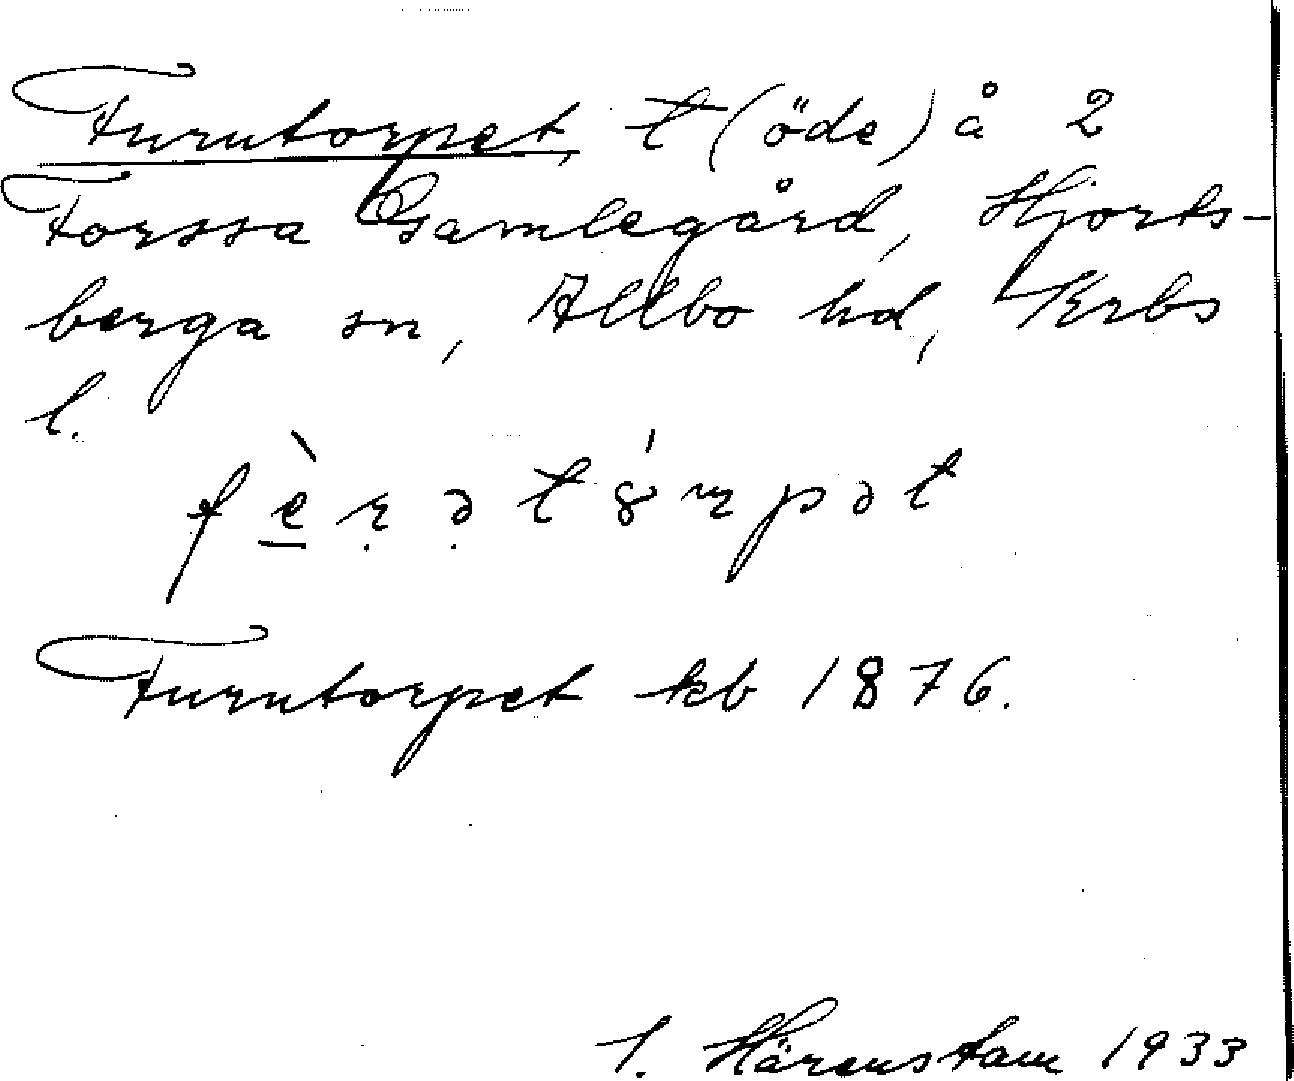 Furutorpet, t (öde) å 2
Forssa Gamlegård, Hjorts-
berga sn, Allbo hd, Krbs
l.
fèrətórpət
Furutorpet kb 1876.
Härenstam 1933